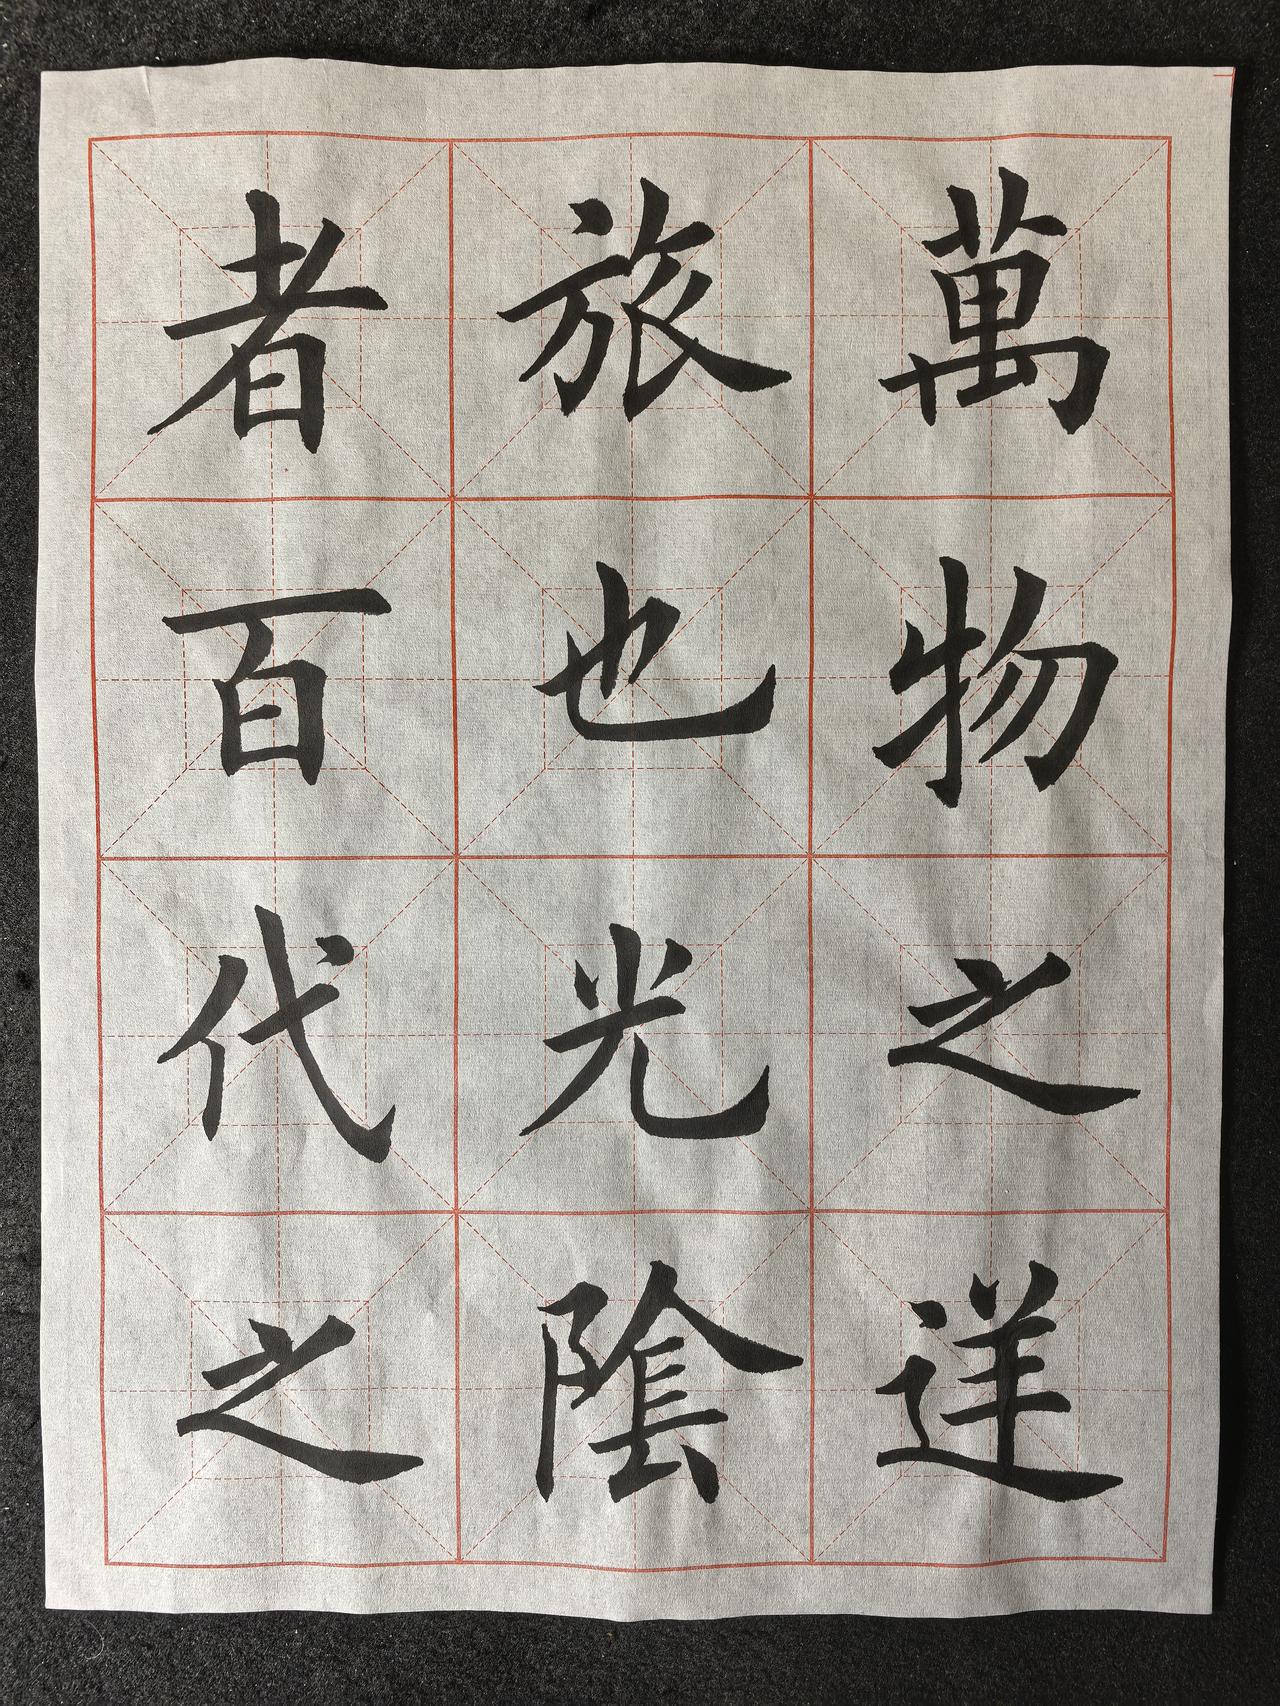 萬物之逆
旅也光陰
者百代之